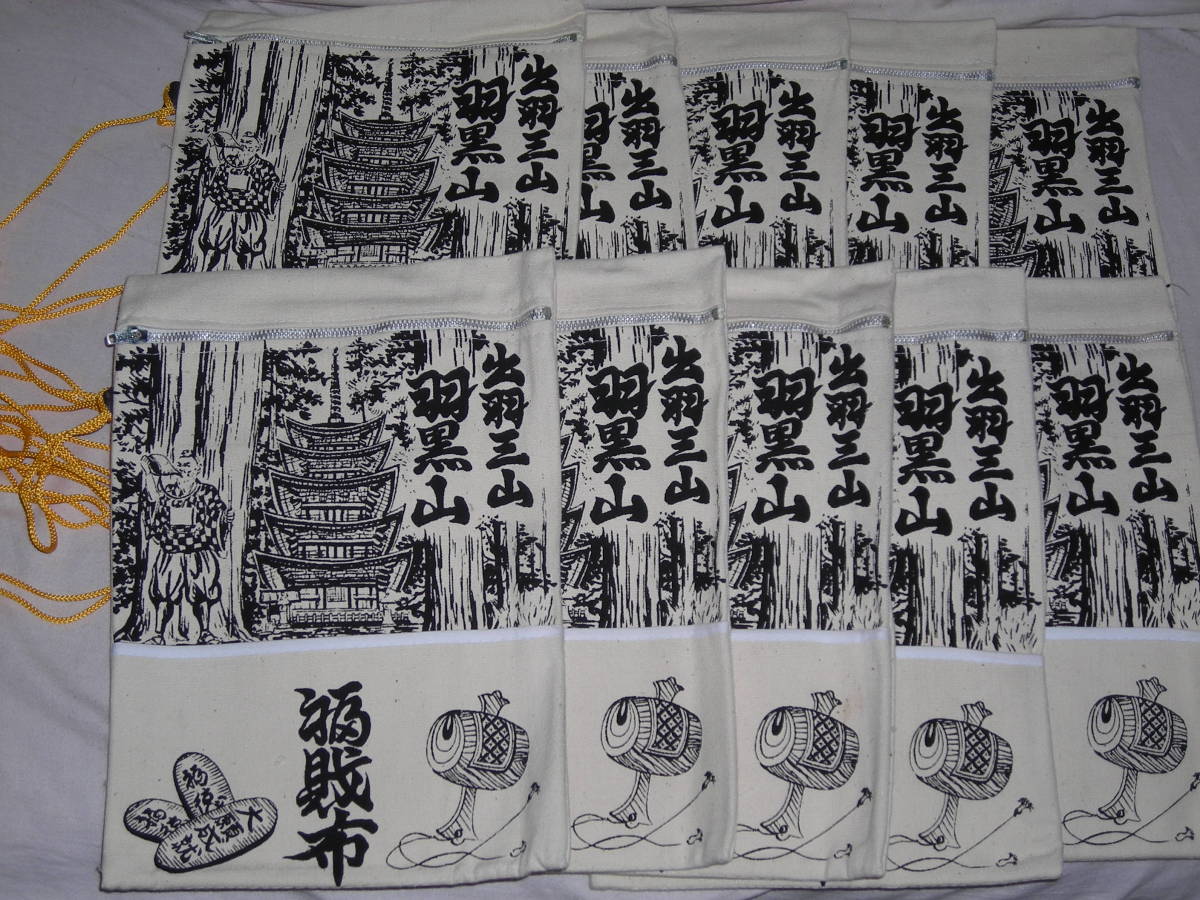 出羽三山
羽黒山
出羽三山
羽黒山
出羽三山
羽黒山
出羽三山
羽黒山
出羽三山
羽黒山
出羽三山
羽黒山
福財布
大願成就
出羽三山
羽黒山
出羽三山
羽黒山
出羽三山
羽黒山
出羽三山
羽黒山